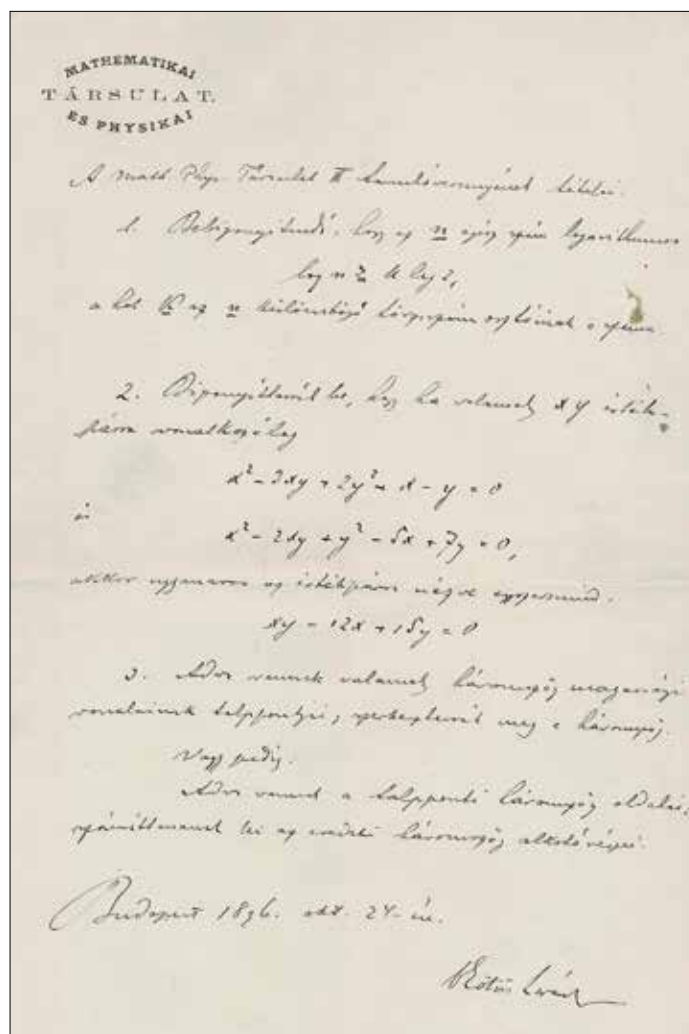 MATHEMATIKAI
TÁRSULAT.
ES PHYSIKAI
A math Phys. Társulat II tanulóversenyének tételei.
1. Bebizonyítandó, hogy az n egész szám logarithmusa
log n ≧ k log 2,
a hol k az n különböző törzsszám osztóinak a száma.
2. Bizonyíttassék be, hogy ha valamely x y érték-
párra vonatkozólag
x² - 3xy + 2y² + x - y = 0
és
x² - 2xy + y² - 5x + 7y = 0,
akkor ugyanarra az értékpárra nézve egyszersmind
xy - 12x + 15y = 0
3. Adva vannak valamely háromszög magassági
vonalainak talppontjai, szerkesztessék meg a háromszög.
Vagy pedig.
Adva vannak a talpponti háromszög oldalai,
számíttassanak ki az eredeti háromszög alkotórészei.
Budapest 1896. okt. 24-én.
Eötvös Loránd